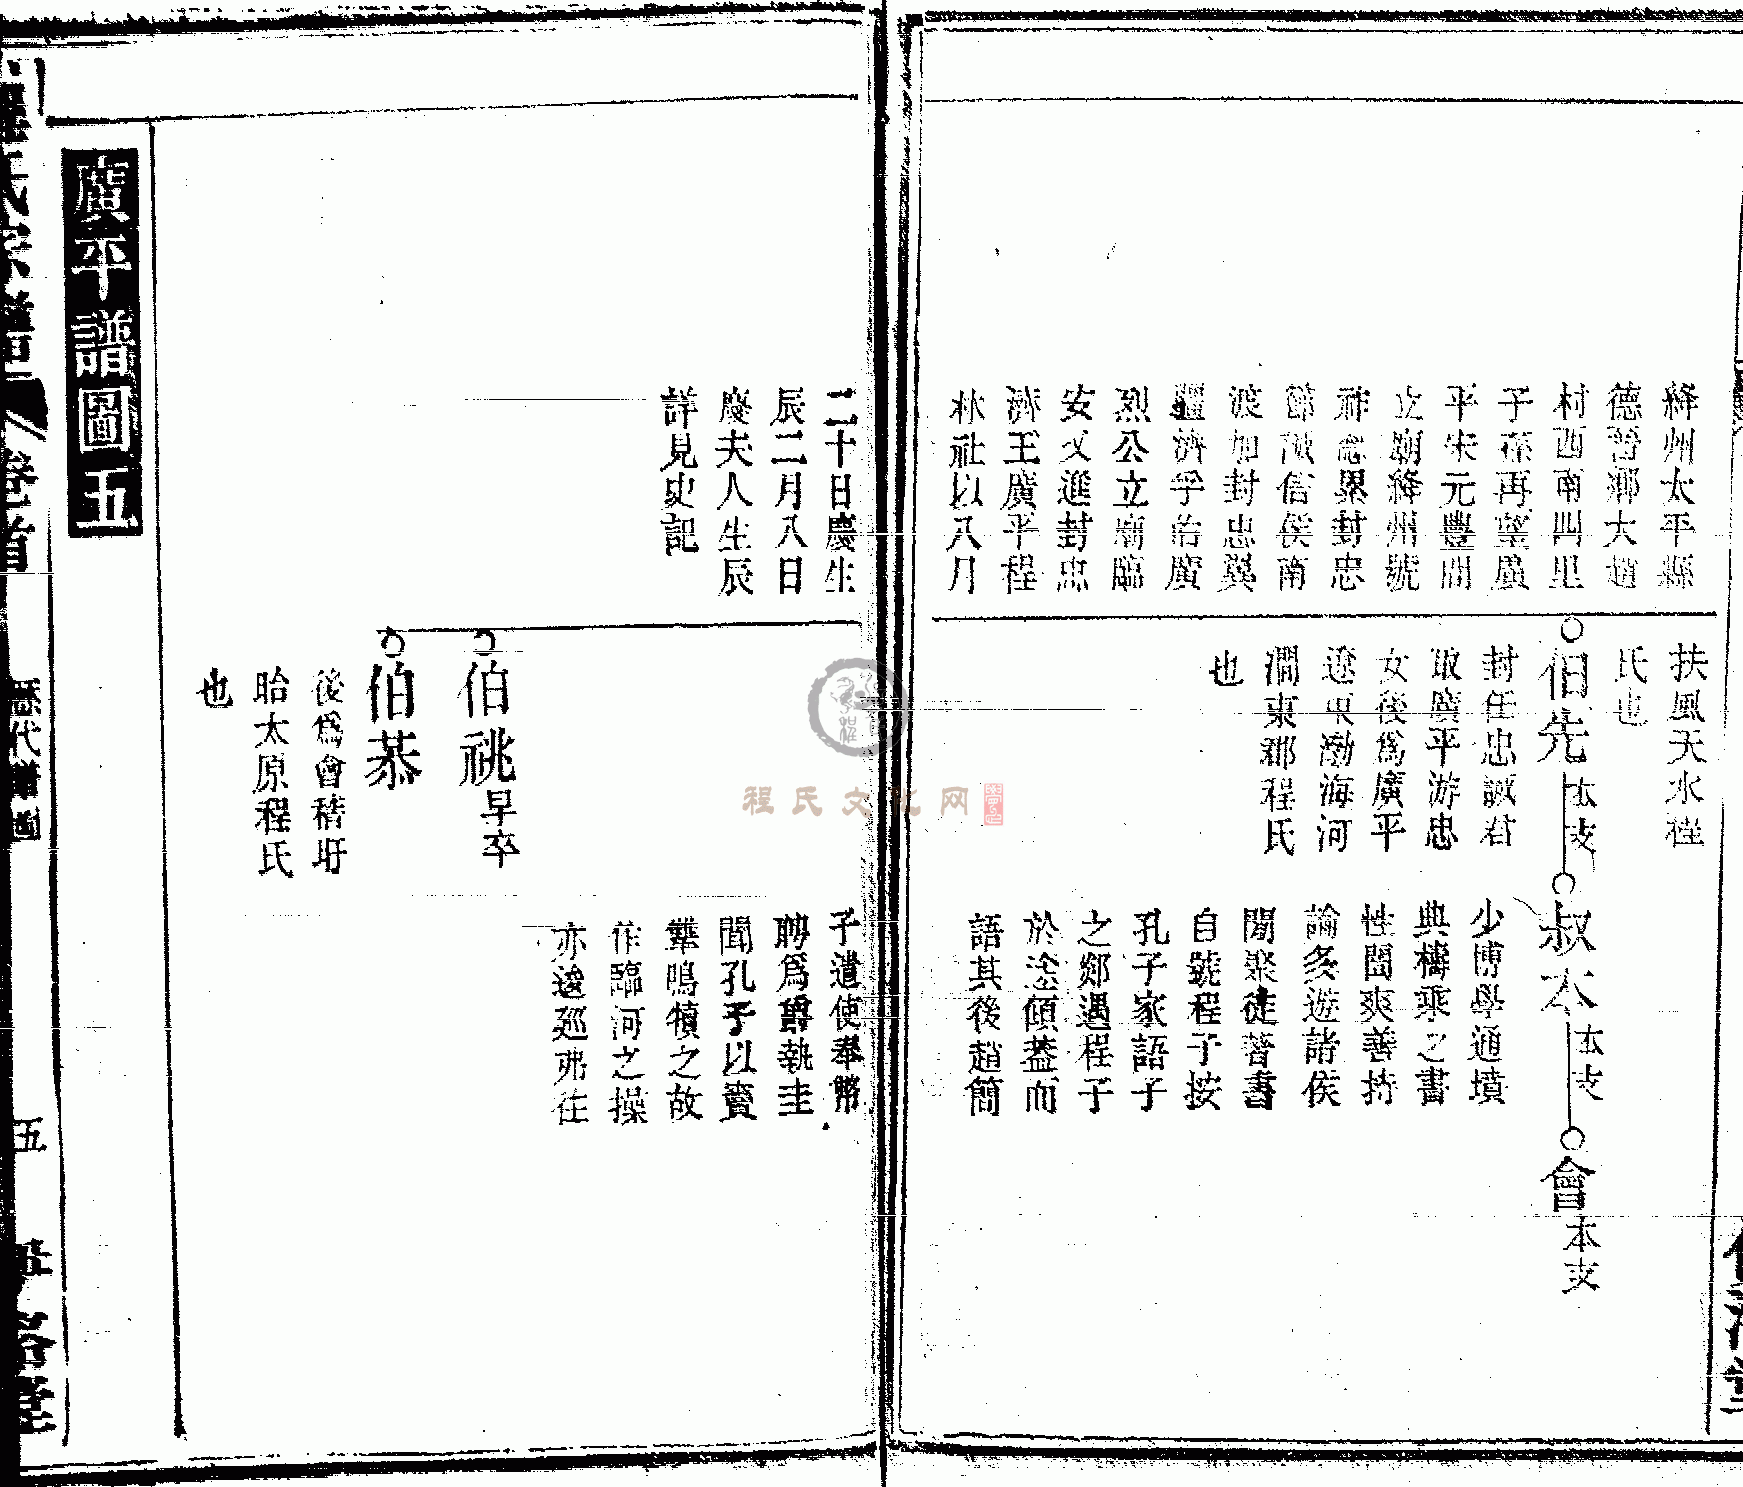 絳州太平縣
德晉鄉大趙
村西南四里
子孫再望廣
平宋元豐間
立廟絳州號
神總累封忠
節誠信侯南
渡加封忠翼
疆濟孚佑廣
烈公立廟臨
安又進封忠
濟王廣平程
林社以八月
二十日慶生
辰二月八日
慶夫人生辰
詳見史記
扶風天水程
氏也
伯先 本支
封任忠誠君
取廣平游忠
女後爲廣平
遼東渤海河
澗東郡程氏
也
叔本 本支
少博學通墳
典檮乘之書
性閎爽善持
論多遊諸侯
間聚徒著書
自號程子按
孔子家語子
之郯遇程子
於塗傾蓋而
語其後趙簡
子遣使奉幣
聘爲爵執圭
聞孔子以竇
犨鳴犢之故
作臨河之操
亦逡廵弗往
會 本支
伯祧 早卒
伯恭
後爲會稽盱
眙太原程氏
也
廣平譜圖五
程氏宗譜 卷首 歷代譜圖 五
程氏文化网